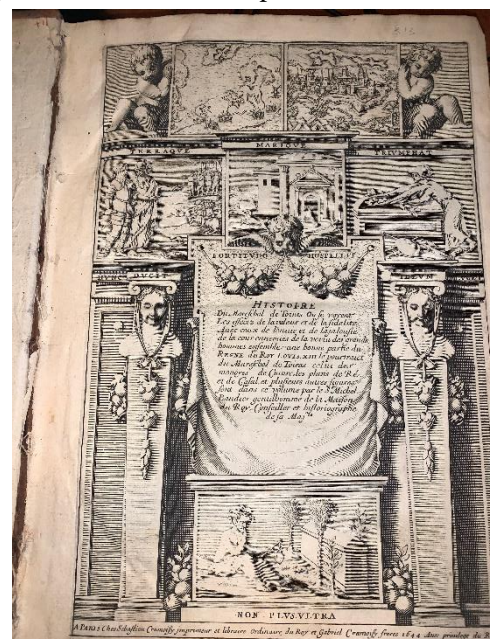 TERRAQVE MARIQVE TRIVMPHAT
FORTITVDO
DVCIT
HISTOIRE
Du Mareschal de Toiras, Ou se voyent
Les effets de la valeur et de la fidelité,
avec ceux de l'envie et de la Jalousie
de la cour ennemies de la vertu des grands
hommes ensemble une bonne partie du
REGNE du ROY LOVIS XIII le pourtraict
du Mareschal de Toiras celui du
marquis de les plans de Ré,
et de Casal et plusieurs autres figures
dans ce volume par le Sr. Michel
Baudier gentilhomme de la Maison
du Roy, Conseiller et historiographe
de sa Maj.te
NON PLVS VLTRA
A PARIS Chez Sebastien Cramoisy imprimeur et libraire Ordinaire du Roy et Gabriel Cramoisy freres 1644 Avec privilege du